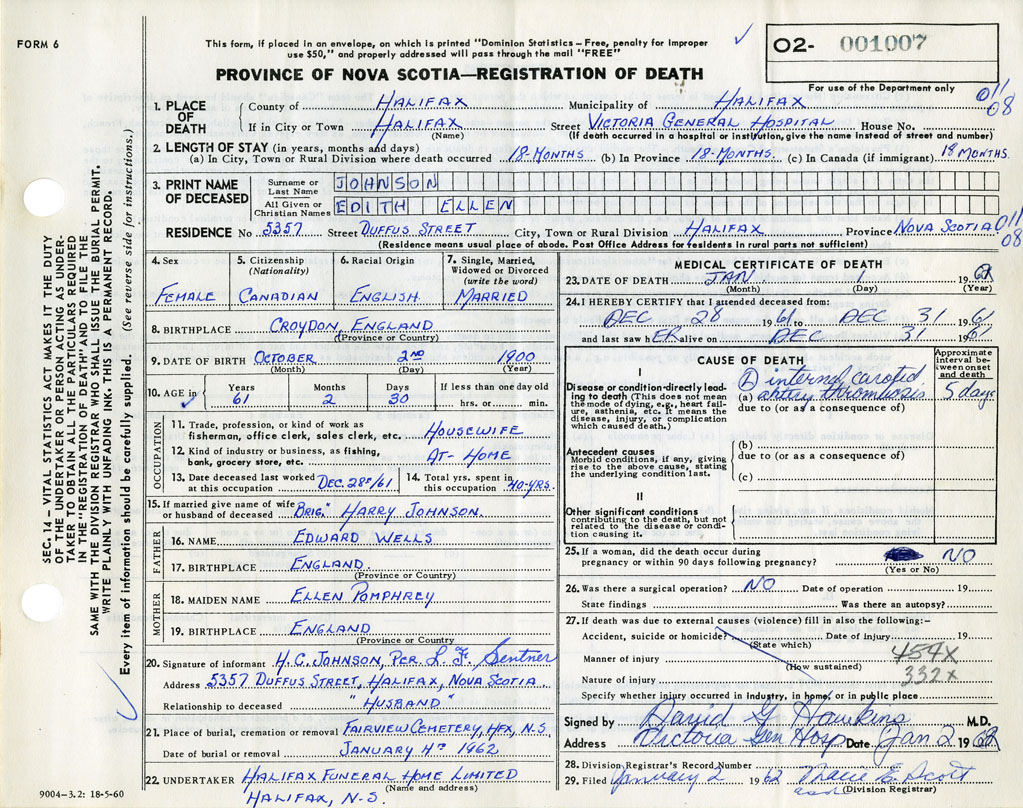 FORM 6
This form, if placed in an envelope, on which is printed "Dominion Statistics – Free, penalty for improper
use $50," and properly addressed will pass through the mail "FREE"
O2- 001007
PROVINCE OF NOVA SCOTIA—REGISTRATION OF DEATH
For use of the Department only
011
08
1. PLACE OF DEATH
County of HALIFAX Municipality of HALIFAX
If in City or Town HALIFAX Street VICTORIA GENERAL HOSPITAL House No.
(Name) (If death occurred in a hospital or institution, give the name instead of street and number)
2. LENGTH OF STAY (in years, months and days)
(a) In City, Town or Rural Division where death occurred 18-MONTHS (b) In Province 18-MONTHS. (c) In Canada (if immigrant) 18 MONTHS.
3. PRINT NAME OF DECEASED
Surname or Last Name JOHNSON
All Given or Christian Names EDITH ELLEN
RESIDENCE No 5357 Street DUFFUS STREET City, Town or Rural Division HALIFAX Province NOVA SCOTIA 011
08
(Residence means usual place of abode. Post Office Address for residents in rural parts not sufficient)
4. Sex
FEMALE
5. Citizenship
(Nationality)
CANADIAN
6. Racial Origin
ENGLISH
7. Single, Married,
Widowed or Divorced
(write the word)
MARRIED
8. BIRTHPLACE CROYDON, ENGLAND
(Province or Country)
9. DATE OF BIRTH OCTOBER 2ND 1900
(Month) (Day) (Year)
10. AGE in
Years Months Days If less than one day old
61 2 30 hrs. or min.
OCCUPATION
11. Trade, profession, or kind of work as
fisherman, office clerk, sales clerk, etc. HOUSEWIFE
12. Kind of industry or business, as fishing,
bank, grocery store, etc. AT-HOME
13. Date deceased last worked
at this occupation DEC. 28/61
14. Total yrs. spent in
this occupation 40-YRS.
15. If married give name of wife
or husband of deceased BRIG. HARRY JOHNSON.
FATHER
16. NAME EDWARD WELLS
17. BIRTHPLACE ENGLAND.
(Province or Country)
MOTHER
18. MAIDEN NAME ELLEN POMPHREY
19. BIRTHPLACE ENGLAND
(Province or Country
20. Signature of informant H.C. JOHNSON, PER L. F. Sentner
Address 5357 DUFFUS STREET, HALIFAX, NOVA SCOTIA.
Relationship to deceased "HUSBAND"
21. Place of burial, cremation or removal FAIRVIEW CEMETERY, HFX, N.S.
Date of burial or removal JANUARY 4TH 1962
22. UNDERTAKER HALIFAX FUNERAL HOME LIMITED
(Name and address)
HALIFAX, N-S.
MEDICAL CERTIFICATE OF DEATH
23. DATE OF DEATH JAN. 1 1962
(Month) (Day) (Year)
24. I HEREBY CERTIFY that I attended deceased from:
DEC 28 1961 to DEC 31 1961
and last saw hER alive on DEC 31 1961
CAUSE OF DEATH
Approximate
interval be-
tween onset
and death
I
Disease or condition directly lead-
ing to death (This does not mean
the mode of dying, e.g., heart fail-
ure, asthenia, etc. It means the
disease, injury, or complication
which caused death.)
(a) internal carotid
artery thrombosis 5 days
due to (or as a consequence of)
Antecedent causes
Morbid conditions, if any, giving
rise to the above cause, stating
the underlying condition last.
(b)
due to (or as a consequence of)
(c)
II
Other significant conditions
contributing to the death, but not
related to the disease or condi-
tion causing it.
25. If a woman, did the death occur during
pregnancy or within 90 days following pregnancy? NO
(Yes or No)
26. Was there a surgical operation? NO Date of operation 19
State findings Was there an autopsy?
27. If death was due to external causes (violence) fill in also the following:–
Accident, suicide or homicide? Date of injury 19
(State which)
Manner of injury 454X
(How sustained)
Nature of injury 332X
Specify whether injury occurred in Industry, in home, or in public place
Signed by David G Hawkins M.D.
Address Victoria Gen Hosp Date Jan 2 1962
28. Division Registrar's Record Number
29. Filed January 2 1962 Marie E. Scott
(Division Registrar)
9004–3.2: 18-5-60
SEC. 14 – VITAL STATISTICS ACT MAKES IT THE DUTY
OF THE UNDERTAKER OR PERSON ACTING AS UNDER-
TAKER TO OBTAIN ALL THE PARTICULARS REQUIRED
IN THE "REGISTRATION OF DEATH" AND TO FILE THE
SAME WITH THE DIVISION REGISTRAR WHO SHALL ISSUE THE BURIAL PERMIT.
WRITE PLAINLY WITH UNFADING INK. THIS IS A PERMANENT RECORD.
Every item of information should be carefully supplied. (See reverse side for instructions.)